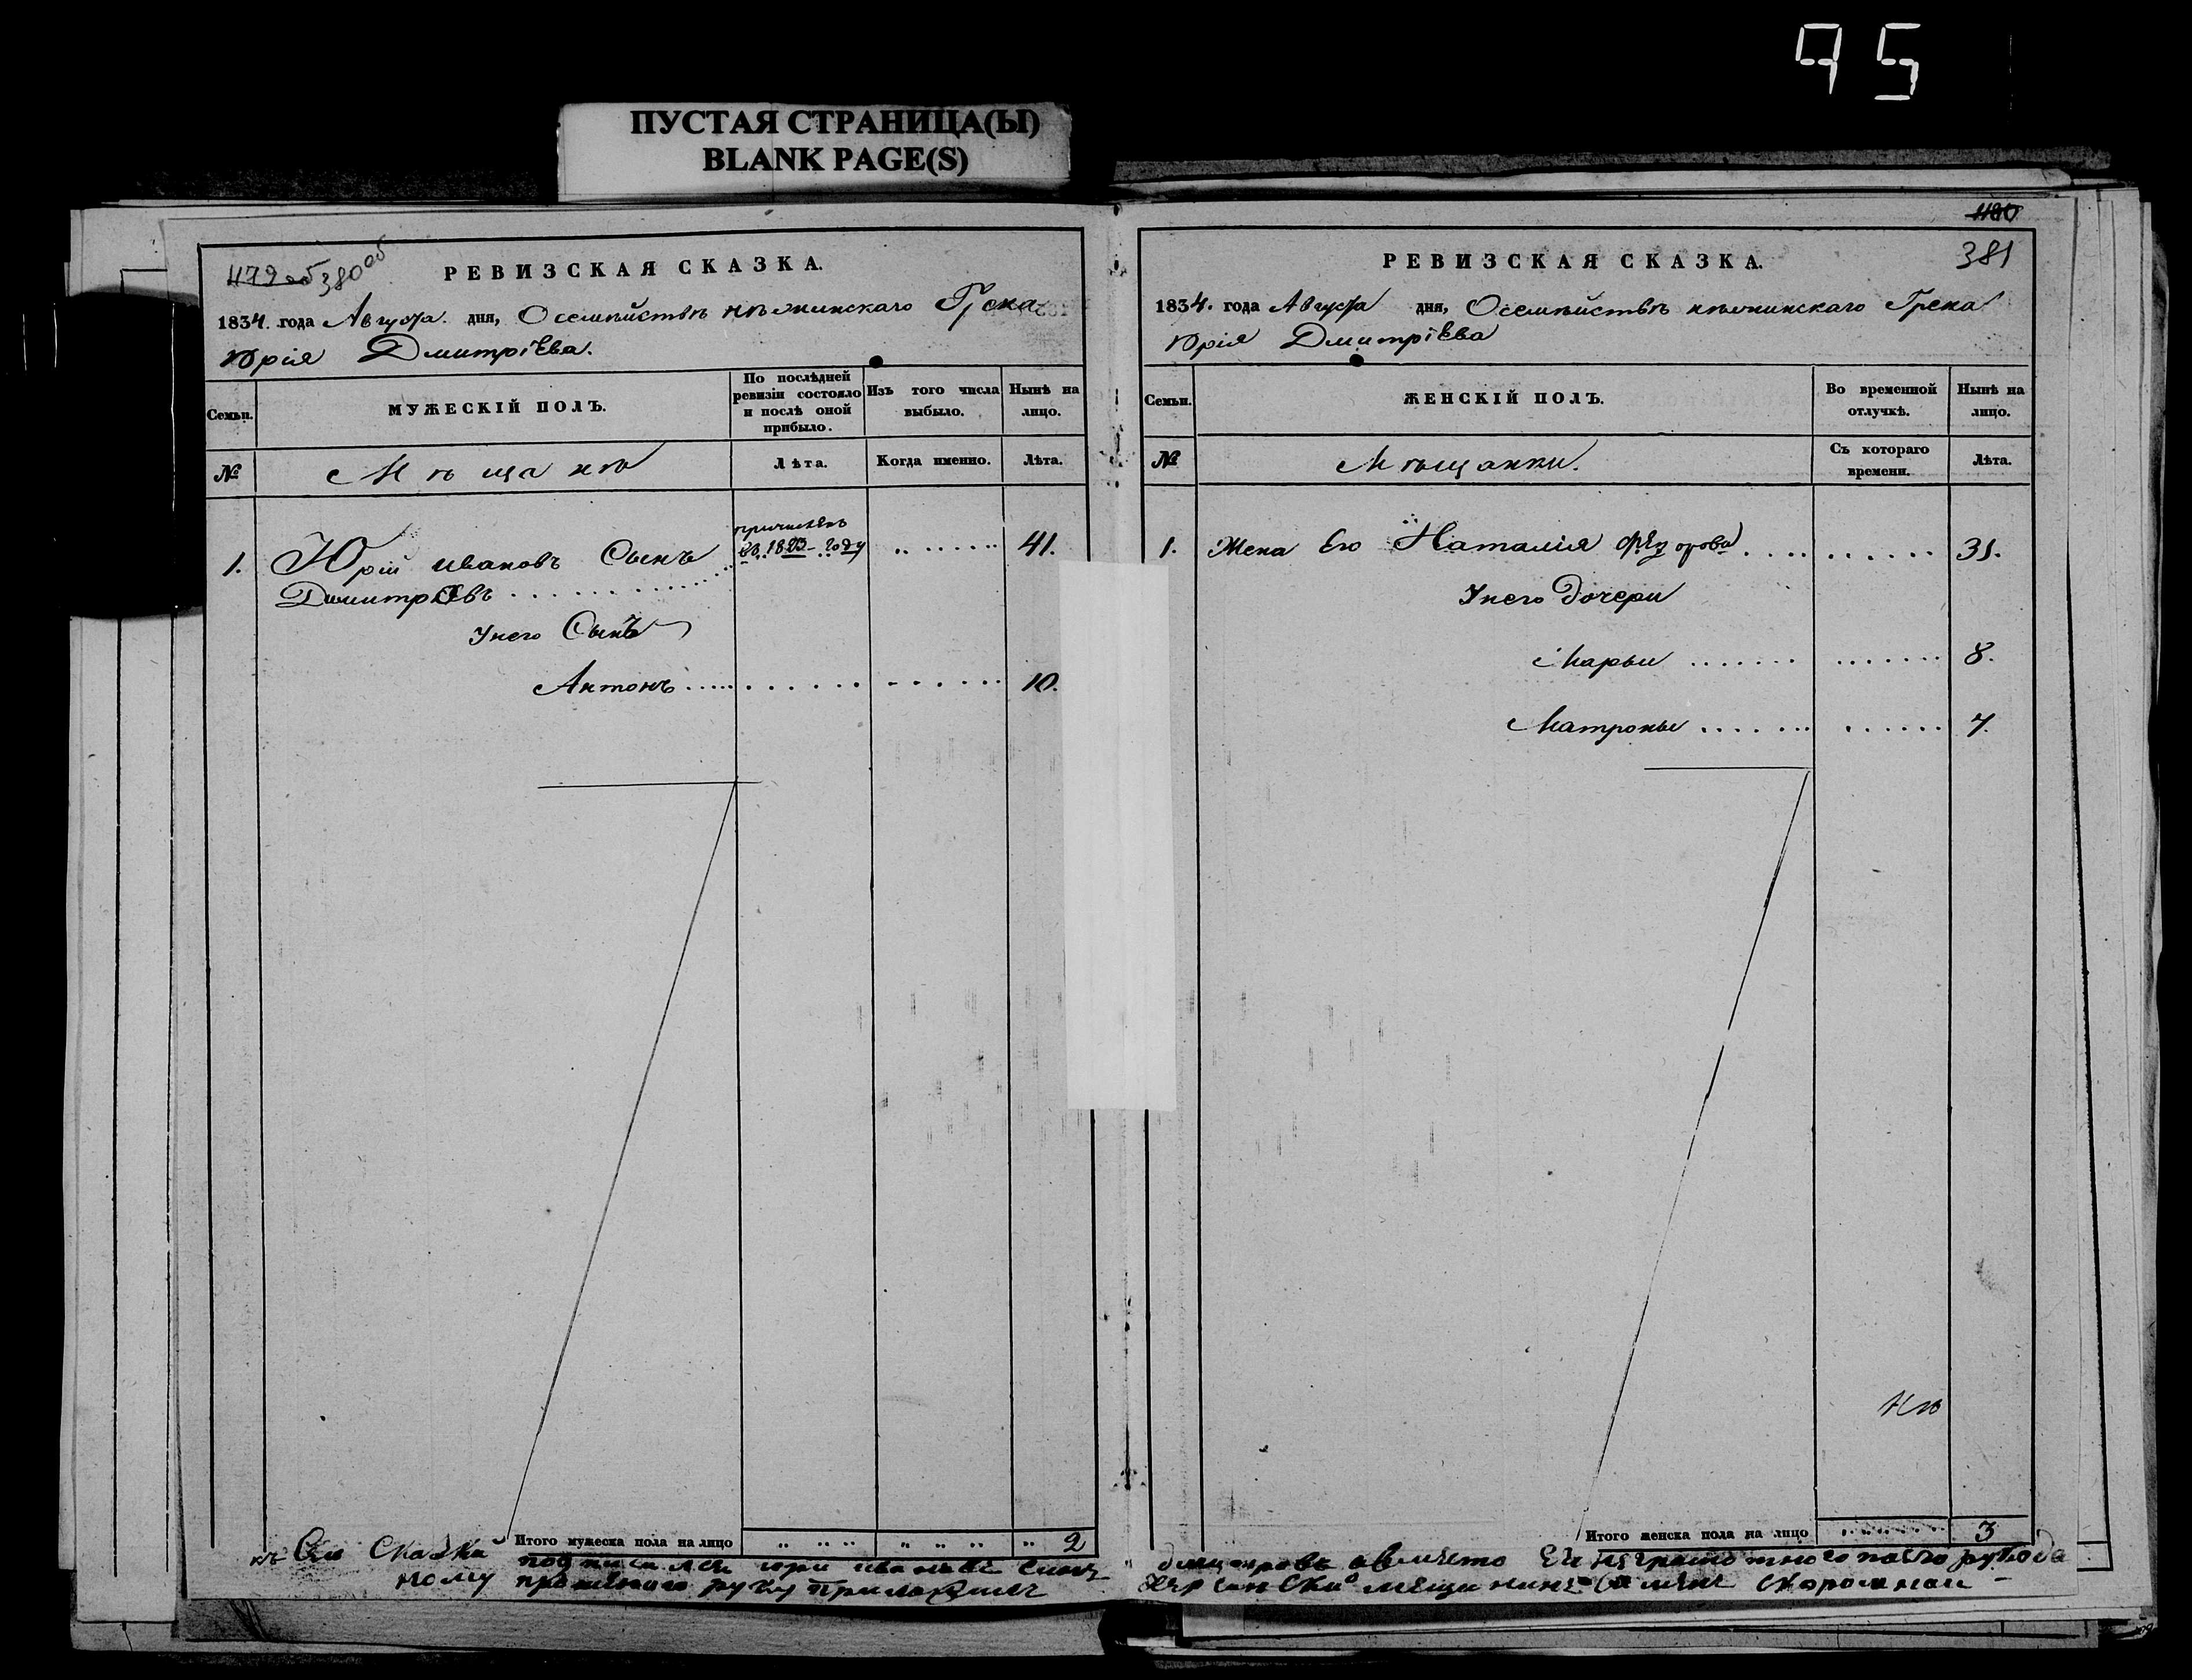 95
ПУСТАЯ СТРАНИЦА(Ы)
BLANK PAGE(S)
479 об 380 об
РЕВИЗСКАЯ СКАЗКА.
1834. года Августа. дня, О семѣйствѣ нѣжинскаго Грека
Юрія Дмитріева.
Семьи.
МУЖЕСКІЙ ПОЛЪ.
По послѣдней ревизіи состояло и послѣ оной прибыло.
Изъ того числа выбыло.
Нынѣ на лицо.
№
Мѣщанѣ
Лѣта.
Когда именно.
Лѣта.
1. Юрій ивановъ Сынъ причисленъ въ 1823 году 41.
Димитріевъ
У него Сынъ
Антонъ 10.
Итого мужеска пола на лицо 2
480
381
РЕВИЗСКАЯ СКАЗКА.
1834. года Августа дня, О семѣйствѣ нѣжинскаго Грека
Юрія Дмитріева
Семьи.
ЖЕНСКІЙ ПОЛЪ.
Во временной отлучкѣ.
Нынѣ на лицо.
№
Мѣщанки.
Съ котораго времени.
Лѣта.
1. Жена Его Наталія Федорова 31.
У него дочери
Марьи 8.
Матроны 7.
Итого женска пола на лицо 3
къ Сеи Сказки подписался юри иванавъ синъ
руку приложилъ